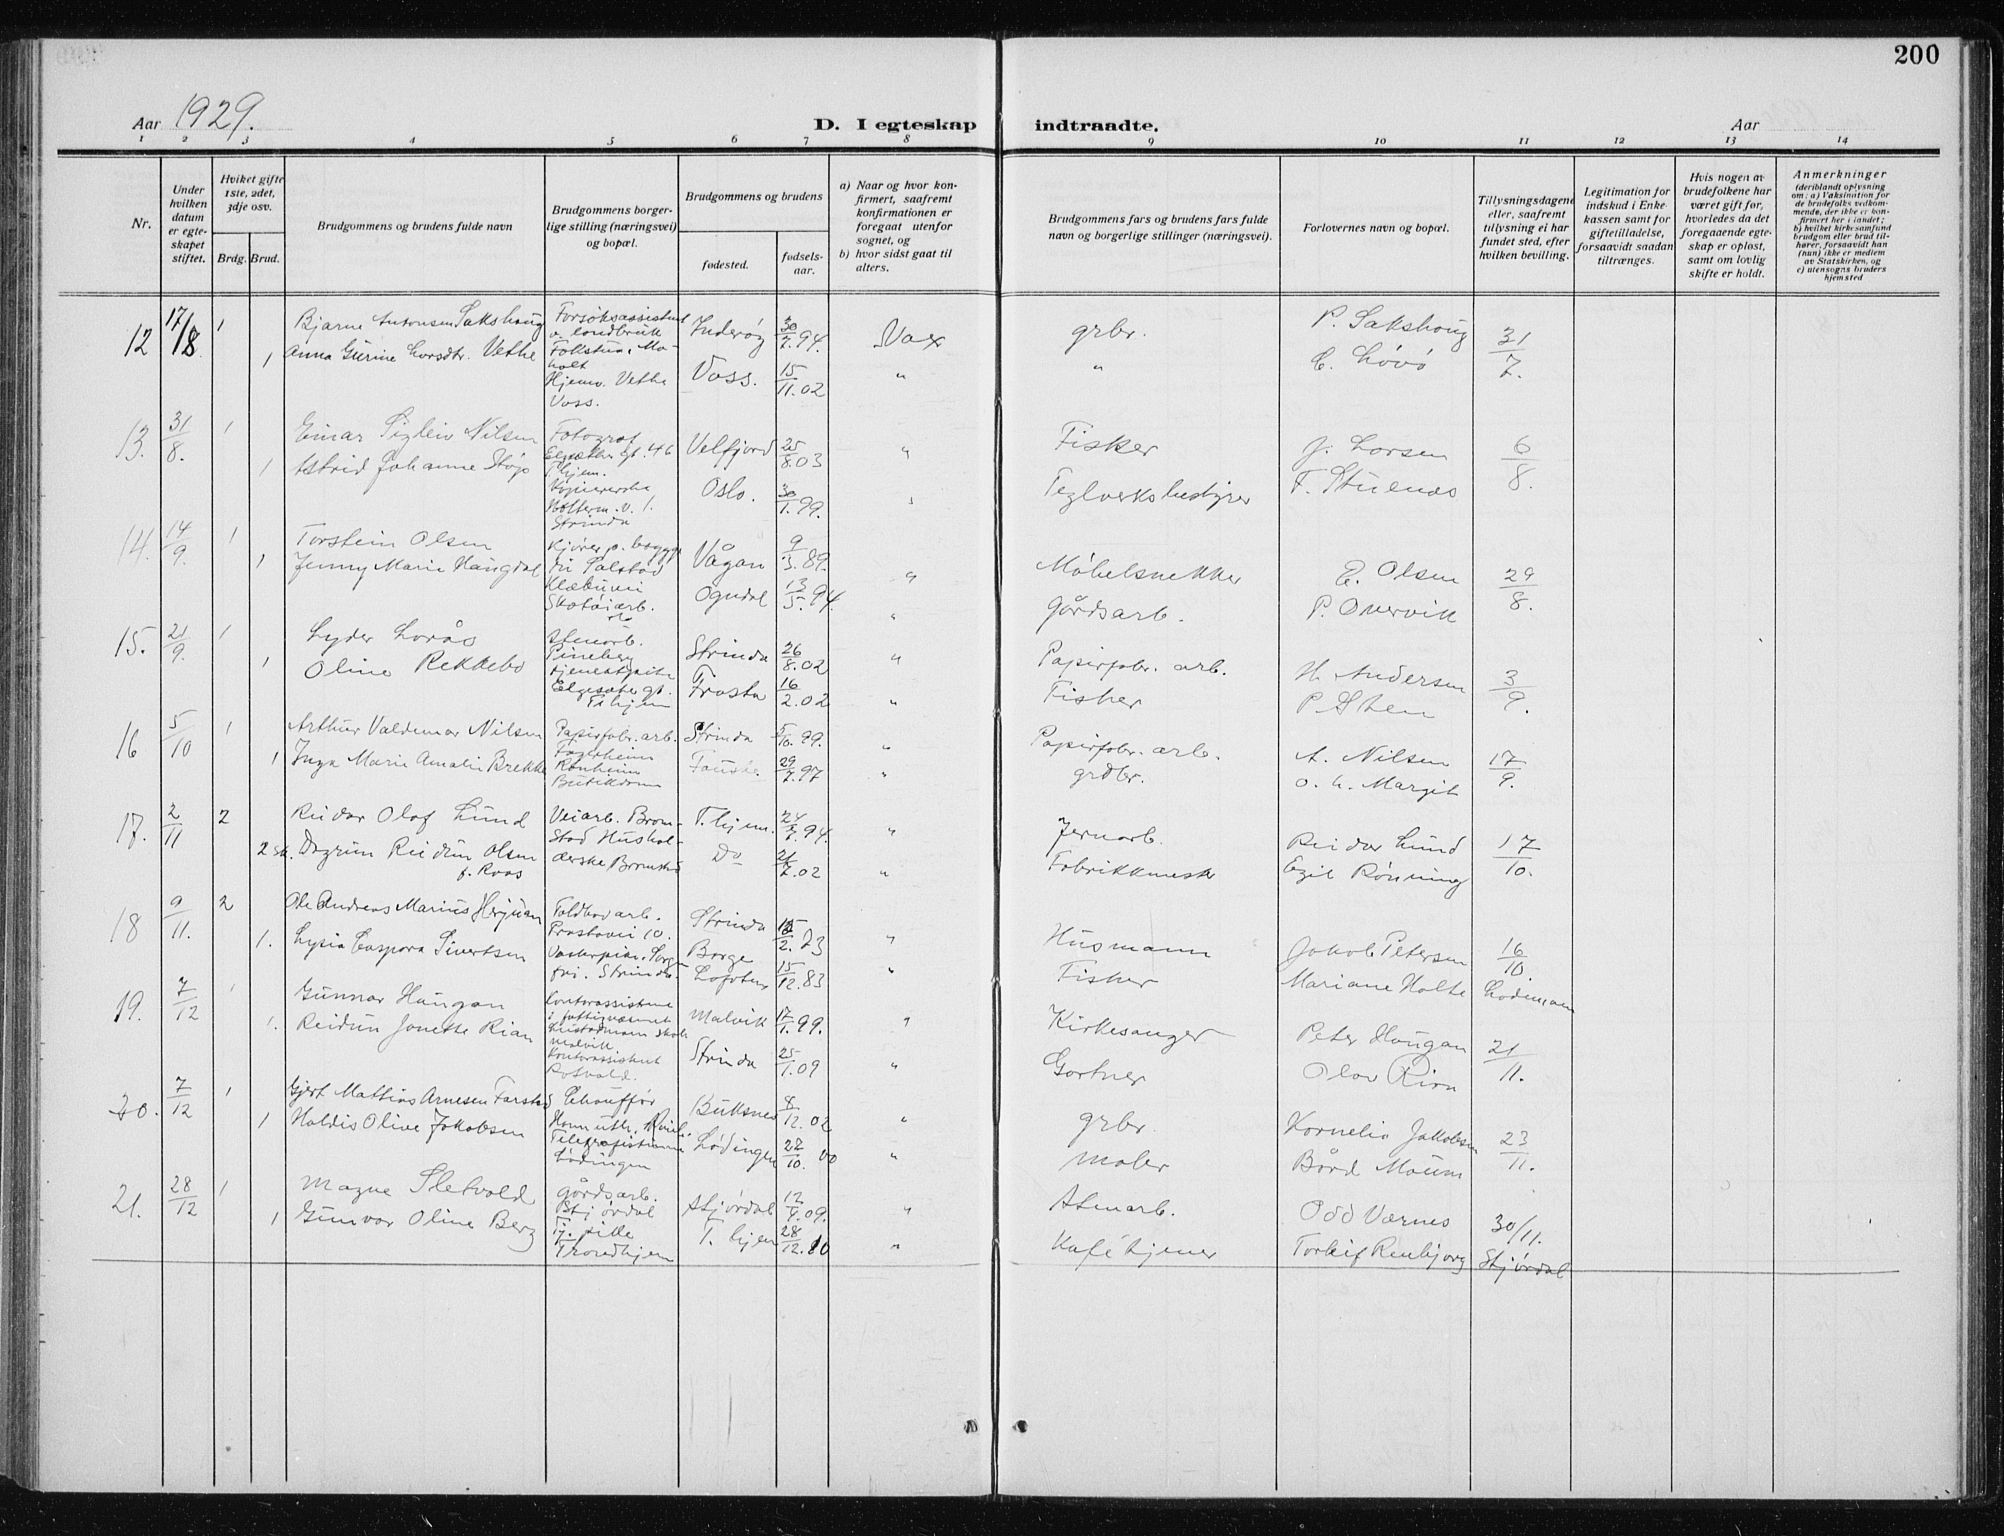 200
Aar 1929.
D. I egteskap indtraadte.
Aar
1 2 3 4 5 6 7 8 9 10 11 12 13 14
Nr.
Under hvilken datum er egteskapet stiftet.
Hviket gifte 1ste, 2det, 3dje osv.
Brdg. Brud.
Brudgommens og brudens fulde navn
Brudgommens borgerlige stilling (næringsvei) og bopæl.
Brudgommens og brudens
fødested.
fødselsaar.
a) Naar og hvor konfirmert, saafremt konfirmationen er foregaat utenfor sognet, og
b) hvor sidst gaat til alters.
Brudgommens fars og brudens fars fulde navn og borgerlige stillinger (næringsvei).
Forlovernes navn og bopæl.
Tillysningsdagene eller, saafremt tillysning ei har fundet sted, efter hvilken bevilling.
Legitimation for indskud i Enkekassen samt for giftetilladelse, forsaavidt saadan tiltrænges.
Hvis nogen av brudefolkene har været gift før, hvorledes da det foregaaende egteskap er opløst, samt om lovlig skifte er holdt.
Anmerkninger
(deriblandt oplysning om: a) Vaksination for de brudefolks vedkommende, der ikke er konfirmert her i landet; b) hvilket kirkesamfund brudgom eller brud tilhører, forsaavidt han (hun) ikke er medlem av Statskirken, og c) utensogns bruders hjemsted
12 17/8 1 Bjarne Antonsen Sakshaug Forsøksassistent Inderøy 30/7.94. Vox grbr. P. Sakshoug 31/7.
1 Anna Gurine Larsdtr. Vethe Hjemv. Vethe Voss. Voss. 15/11.02 " " C. Løvø
13. 31/8. 1 Einar Sigleiv Nilsen Fotograf Elgesether gt. 46 T.hjem. Velfjord 25/8.03 " Fisker J. Larsen 6/8.
1 Astrid Johanne Støp Strinda Oslo. 30/1.99. " Teglverksbestyrer F. Stuenas
14. 14/9. 1 Torstein Olsen Vågan 9/3.89. " Møbelsnekker E. Olsen 29/8.
1 Jenny Marie Haugdal Skotøiarb. Ogndal 13/5.94. " Gårdsarb. P. Overvik
15. 21/9. 1 Lyder Lorås Stenarb. Pineberg Strinda 26/8.02 " Papirfabr. arb. H. Andersen 3/9.
1 Oline Rekkebo Elgesæter gt. T.hjem Frosta 16/2.02 " Fisker P. Sten
16 5/10 1 Arthur Valdemar Nilsen Papirfabr. arb. Fagerheim Strinda 5/10.99. " Papirfabr. arb. A. Nilsen 17/9.
1 Inga Marie Amalie Brekke Ranheim Butikdam Fauske 29/7.97 " grdbr. O. H. Margit
17. 2/11 2 Reidar Olaf Lund Veiarb. Bromstad T.hjem. 24/7.94. " Jernarb. Reidar Lund 17/10.
2 sk. Dagrun Reidun Olsen f. Roos Husholderske Bromstad Do 21/7.02 " Fabrikkmester Egil Rønning
18 9/11. 2 Ole Andreas Marius Herjuan Toldbodarb. Prostavei 10. Strinda 15/2.73 " Husmann Jakob Petersen 16/10.
1. Lysia Caspora Sivertsen Vaskepike. Sorgenfri. Strinda. Borge Lofoten 15/12.83 " Fisker Mariane Holte Lademoen
19. 7/12 1 Gunnar Haugan Kontorassistent i fattigvæsenet Malvik Malvik 17/1.99. " Kirkesanger Peter Haugan 21/11.
1. Reidun Jonette Rian Kontorassistent Rotvold. Strinda 25/1.09 " Gartner Olav Rian
20. 7/12 1 Gjert Mathias Arnesen Farstad Chauffør Buksnes 8/12.02 " grbr. Kornelie Jakobsen 23/11.
1 Haldis Olive Jakobsen Telegrafistinne Lødingen Lødingen 27/10.00 " Maler Bård Moum
21. 28/12 1 Magne Sletvold gårdsarb. Stjørdal Stjørdal 12/4.09. " Stenarb. Odd Værnes 30/11.
1 Gunvor Oline Berg Tj. pike Trondhjem T. hjem 28/12.10 " Kafétjener Torleif Renbjorg Stjørdal